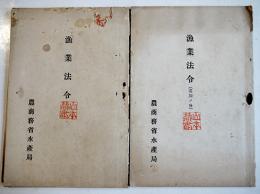 漁業法令
農商務省水産局
漁業法令
農商務省水産局